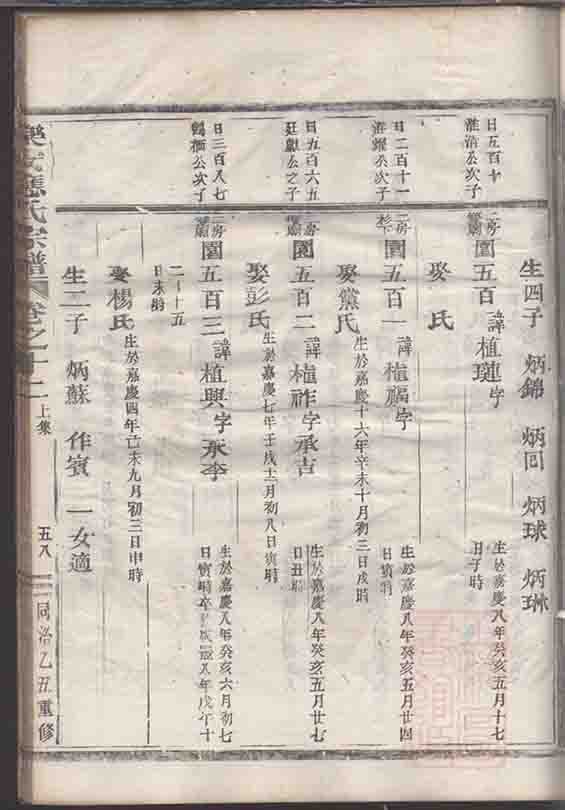 生四子 炳錦 炳回 炳球 炳琳
日五百十
淮浩公次子
二房
園五百 諱植璉字 生於嘉慶八年癸亥五月十七
日子時
娶 氏
日二百十一
淮耀公次子
二房
園五百一 諱植福字 生於嘉慶八年癸亥五月廿四
日寅時
娶熊氏 生於嘉慶十六年辛未十月初三日戌時
日五百六五
廷獻公之子
二房
園五百二 諱植祚字承吉 生於嘉慶八年癸亥五月廿七
日丑時
娶彭氏 生於嘉慶七年壬戌十二月初八日寅時
日三百八七
公次子
二房
園五百三 諱植興字永李 生於嘉慶八年癸亥六月初七
日寅時卒於咸豐八年戊午十
二月十五
日未時
娶楊氏 生於嘉慶四年己未九月初三日申時
生二子 炳蘇 作賓 一女適
樂安 氏宗譜 卷之十二 上集 五八 同治乙丑重修